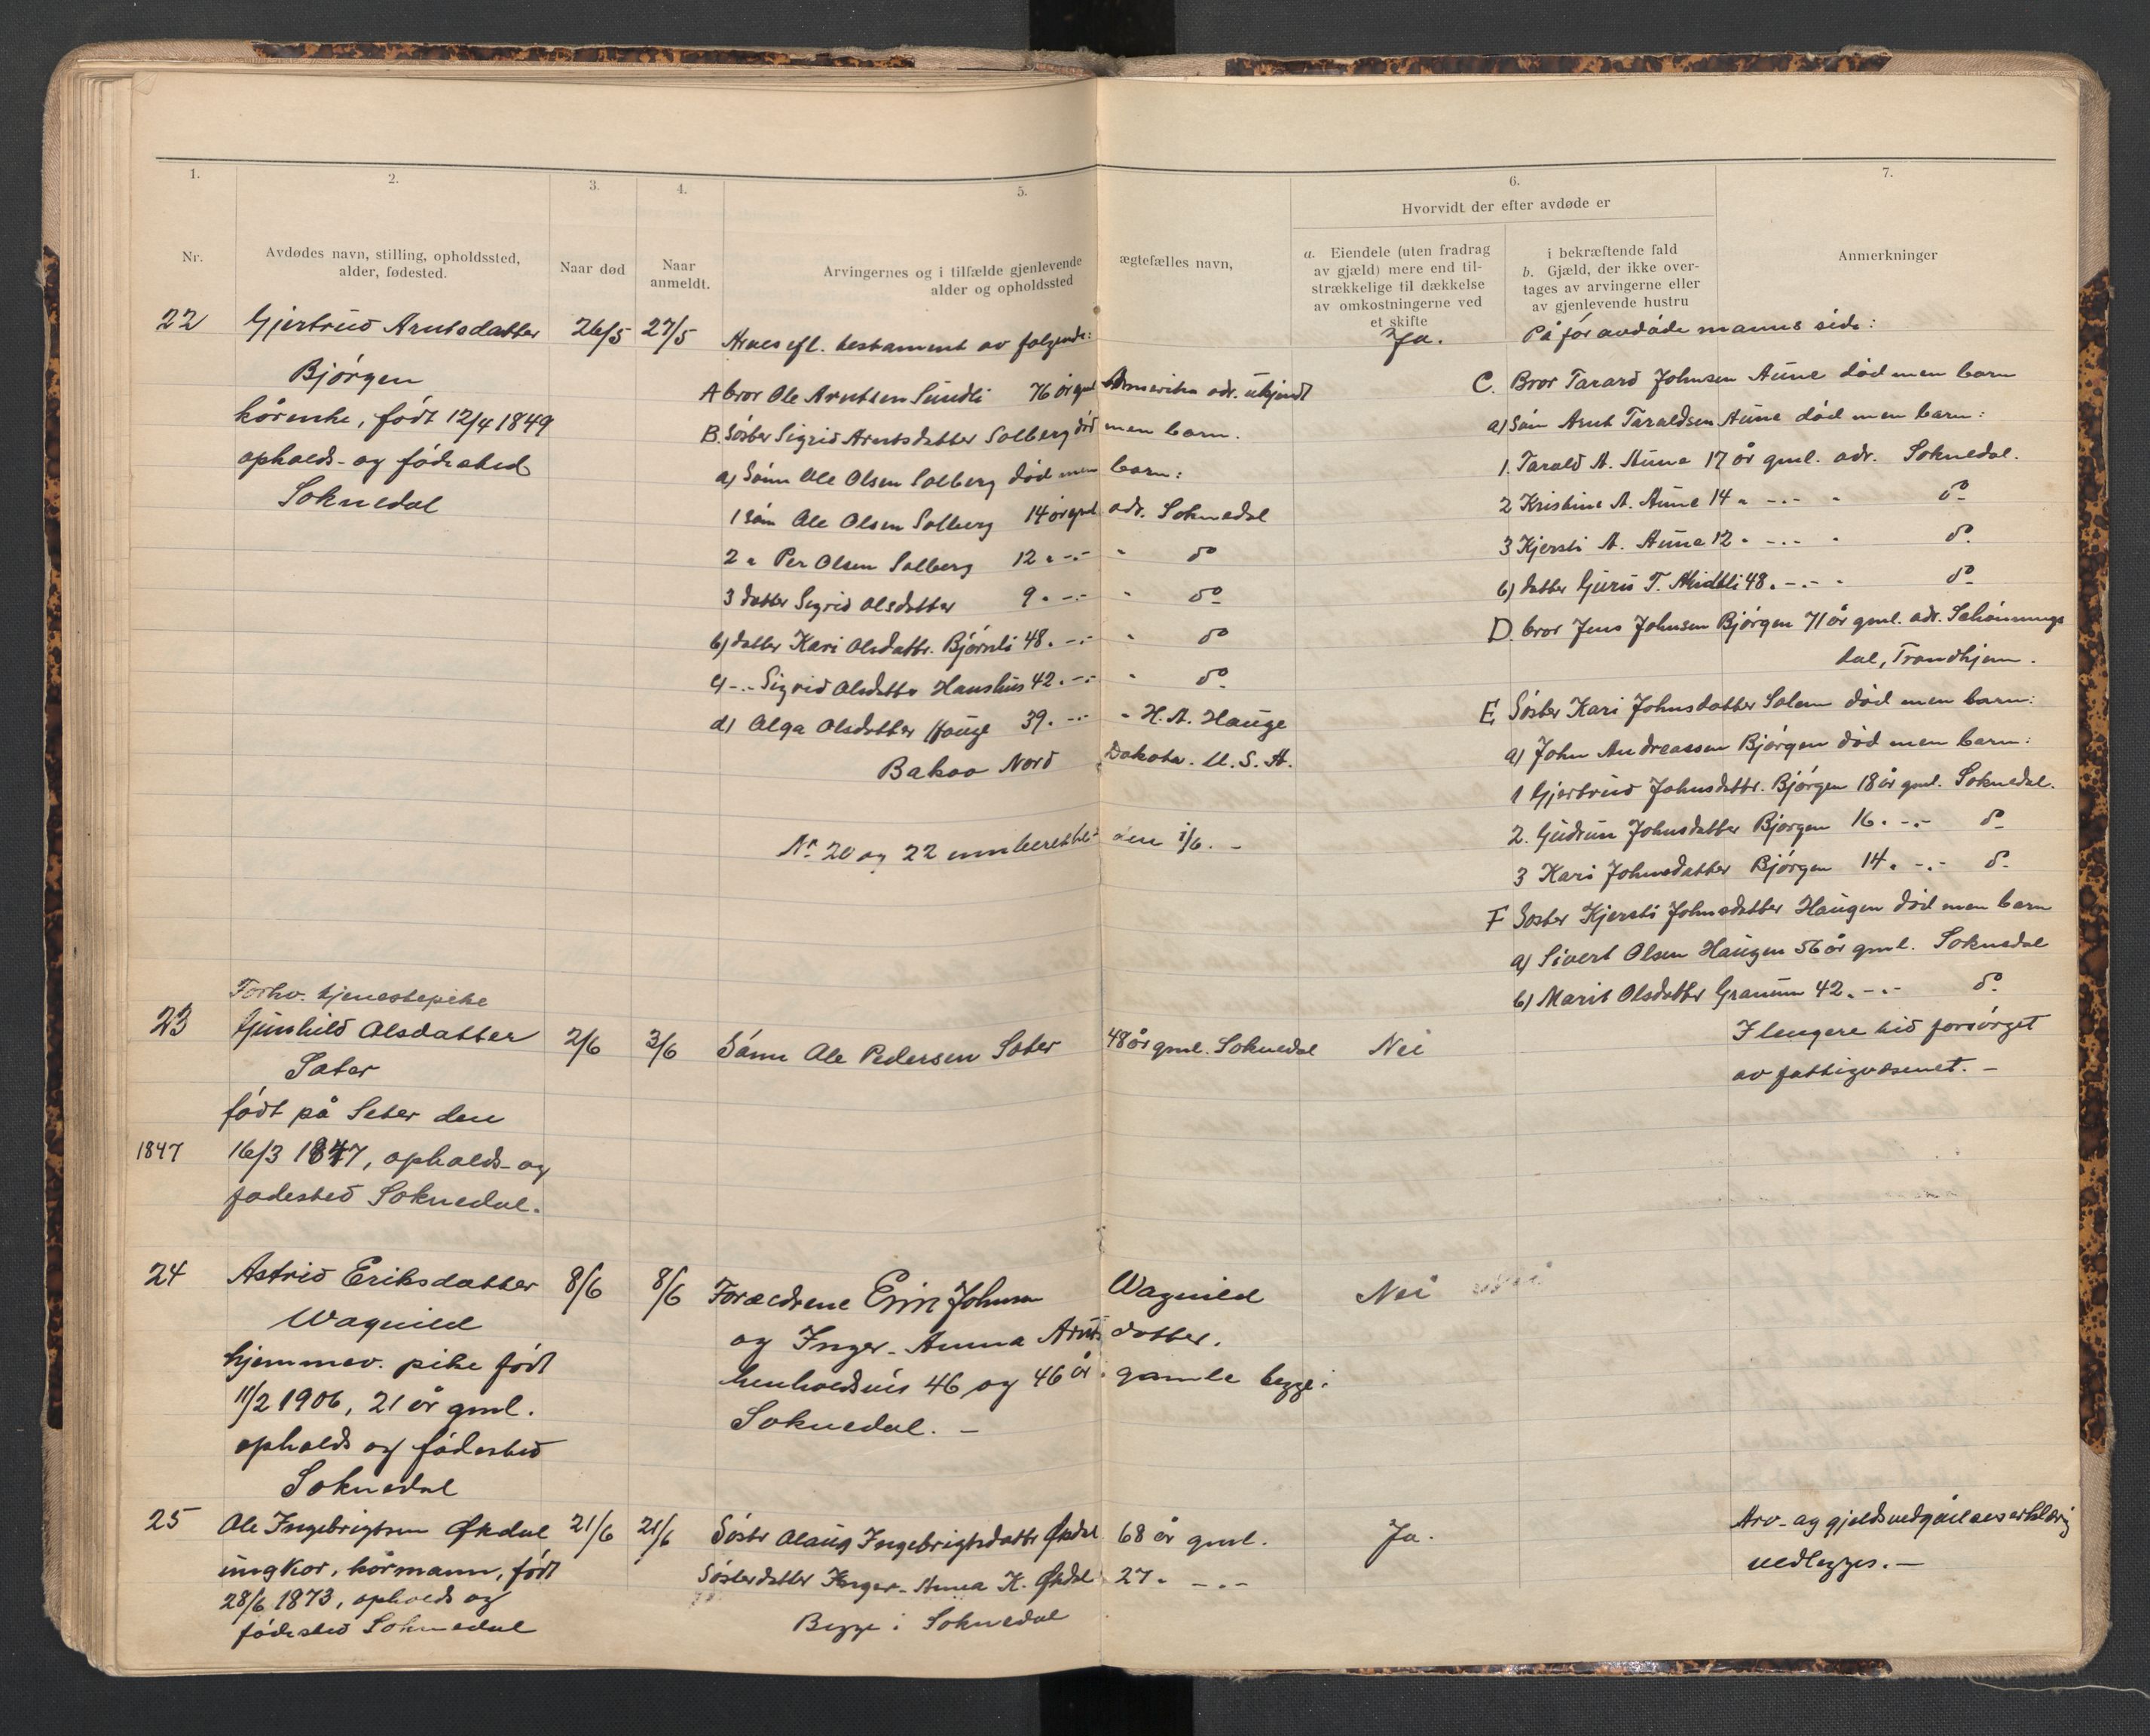 1.
2.
3.
4.
5.
6.
7.
Hvorvidt der efter avdøde er
Nr.
Avdødes navn, stilling, opholdssted,
alder, fødested.
Naar død
Naar
anmeldt.
Arvingernes og i tilfælde gjenlevende ægtefælles navn,
alder og opholdssted
a. Eiendele (uten fradrag
av gjæld) mere end til-
strækkelige til dækkelse
av omkostningerne ved
et skifte
i bekræftende fald
b. Gjæld, der ikke over-
tages av arvingerne eller
av gjenlevende hustru
Anmerkninger
22
Gjertrud Arntsdatter
Bjørgen
kårenke, født 12/4 1849
opholds- og fødested
Soknedal
26/5
27/5
Arves efl. testament av følgende:
A bror Ole Arntsen Sundli 76 år gml Amerika adr. ukjendt
B. Søster Sigrid Arntsdatter Solberg død men barn.
a) Sønn Ole Olsen Solberg død men barn:
1 søn Ole Olsen Solberg 14 år gml adr. Soknedal
2 " Per Olsen Solberg 12 " -.- " do
3 datter Sigrid Olsdatter 9 " -.- " do
b) datter Kari Olsdattr. Bjørnli 48 " -.- " do
c) -.- Sigrid Olsdattr Hanshus 42 " -.- " do
d) Olga Olsdatter Hauge 39 " -.- " H. A. Hauge
Bakoo Nord Dakota. U. S. A.
Nr 20 og 22 innberettet den 1/6. -
Ja.
På før avdøde manns side:
C. Bror Tarard Johnsen Aune død men barn
a) Søn Arnt Taraldsen Aune død men barn:
1. Tarald A. Aune 17 år gml. adr. Soknedal.
2 Kristine A. Aune 14 " -.- " do
3 Kjersti A. Aune 12 " -.- " do
b) datter Guru T. Midtli 48 " -.- " do
D. bror Jens Johnsen Bjørgen 71 år gml. adr. Schønnings
dal, Trondhjem.
E Søster Kari Johnsdatter Solem død men barn:
a) John Andreassen Bjørgen død men barn:
1 Gjertrud Johnsdattr. Bjørgen 18 år gml. Soknedal.
2. Gudrun Johnsdatter Bjørgen 16 " -.- do
3 Kari Johnsdatter Bjørgen 14 " -.- do
F Søster Kjersti Johnsdatter Haugen død men barn
a) Sivert Olsen Haugen 56 år gml. Soknedal
b) Marit Olsdatter Granum 42 " -.- do
Forhv. tjenestepike
23
Gunhild Olsdatter
Sater
født på Seter den
1847
16/3 1847, opholds- og
fødested Soknedal.
2/6
3/6
Sønn Ole Pedersen Sater 48 år gml. Soknedal
Nei
I lengere tid forsørget
av fattigvæsenet. -
24
Astrid Eriksdatter
Wagnild
hjemmev. pike født
11/2 1906, 21 år gml.
opholds og fødested
Soknedal
8/6
8/6
Forældrene Erik Johnsen Wagnild
og Inger-Anna Arntsdatter.
henholdsvis 46 og 46 år gamle begge i
Soknedal. -
Nei
25
Ole Ingebrigtsen Økdal
ungkar, kårmann, født
28/6 1873, opholds og
fødested Soknedal
21/6
21/6
Søster Olaug Ingebrigtsdattr Økdal 68 år gml.
Søsterdatter Inger-Anna K. Økdal 27 " -.-
Begge i Soknedal
Ja.
Arv- og gjeldsvedgåelseserklæring
vedlegges. -